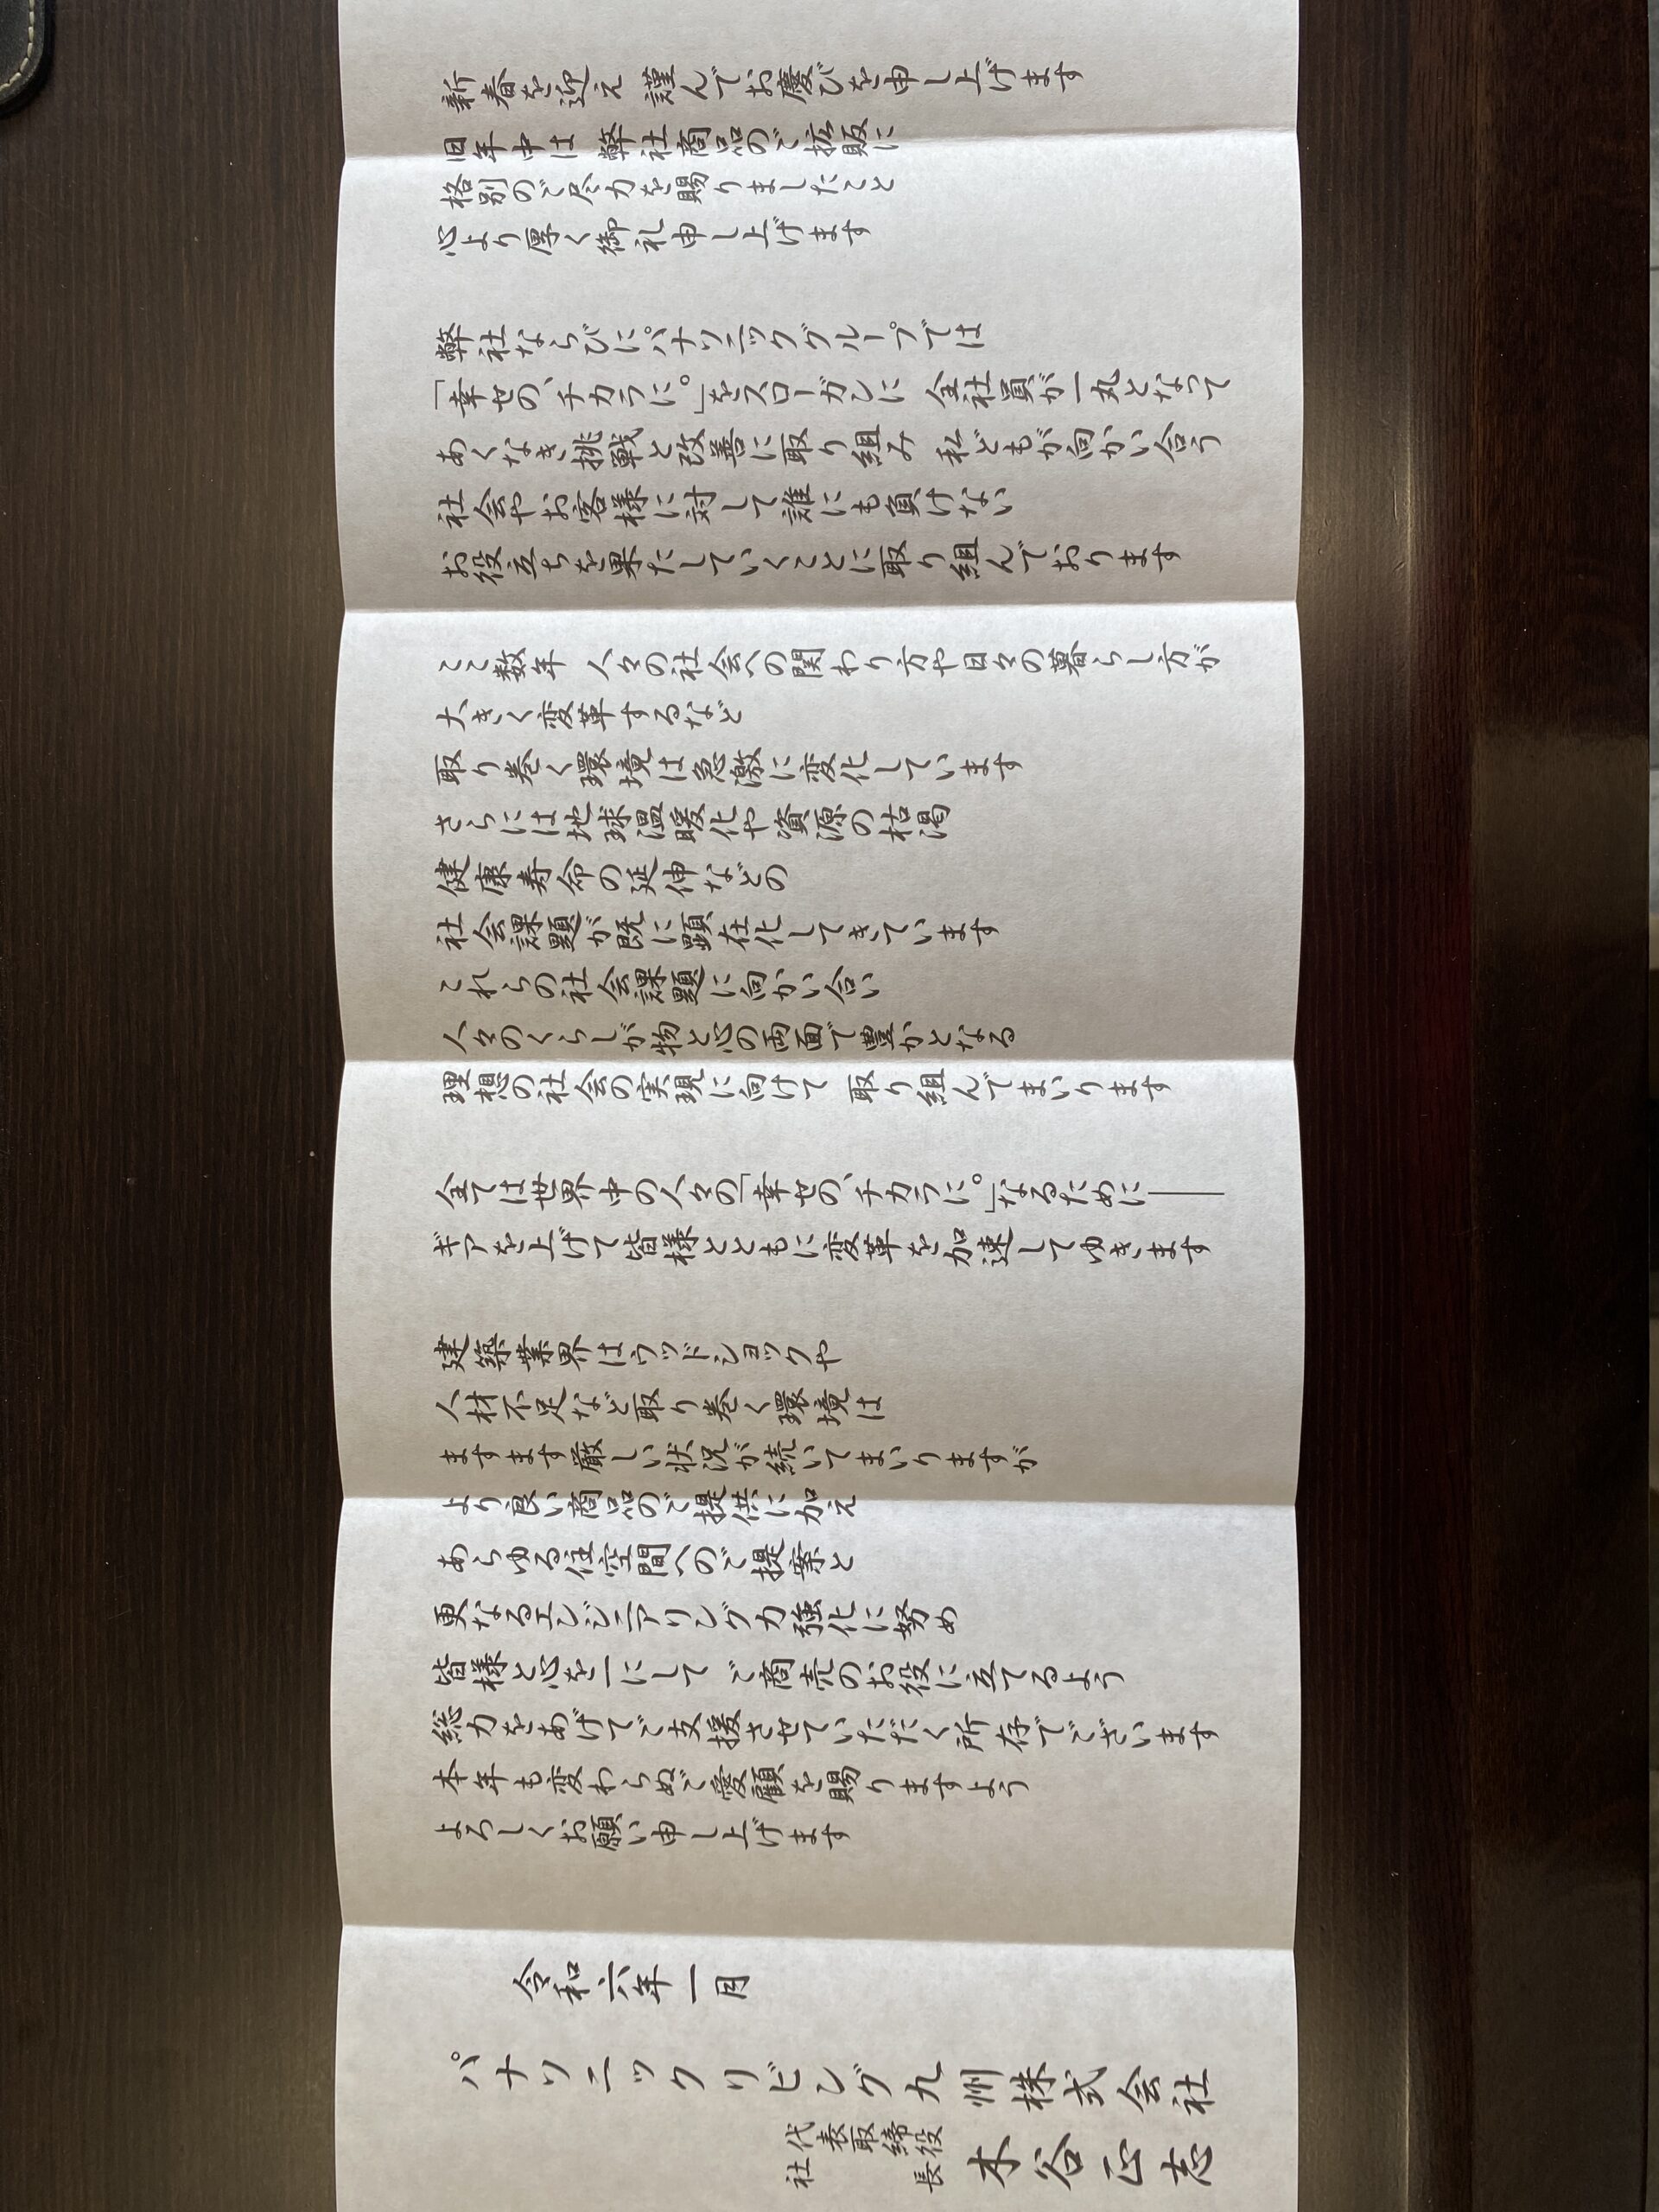 新春を迎え 謹んでお慶びを申し上げます
旧年中は 弊社商品のご拡販に
格別のご尽力を賜りましたこと
心より厚く御礼申し上げます
弊社ならびにパナソニックグループでは
「幸せの、チカラに。」をスローガンに 全社員が一丸となって
あくなき挑戦と改善に取り組み 私どもが向かい合う
社会やお客様に対して誰にも負けない
お役立ちを果たしていくことに取り組んでおります
ここ数年 人々の社会への関わり方や日々の暮らし方が
大きく変革するなど
取り巻く環境は急激に変化しています
さらには地球温暖化や資源の枯渇
健康寿命の延伸などの
社会課題が既に顕在化してきています
これらの社会課題に向かい合い
人々のくらしが物と心の両面で豊かとなる
理想の社会の実現に向けて 取り組んでまいります
全ては世界中の人々の「幸せの、チカラに。」なるために――
ギアを上げて皆様とともに変革を加速してゆきます
建築業界はウッドショックや
人材不足など取り巻く環境は
ますます厳しい状況が続いてまいりますが
より良い商品のご提供に加え
あらゆる住空間へのご提案と
更なるエンジニアリング力強化に努め
皆様と心を一にして ご商売のお役に立てるよう
総力をあげてご支援させていただく所存でございます
本年も変わらぬご愛顧を賜りますよう
よろしくお願い申し上げます
令和六年一月
パナソニック リビング九州株式会社
代表取締役
社長
木谷正志